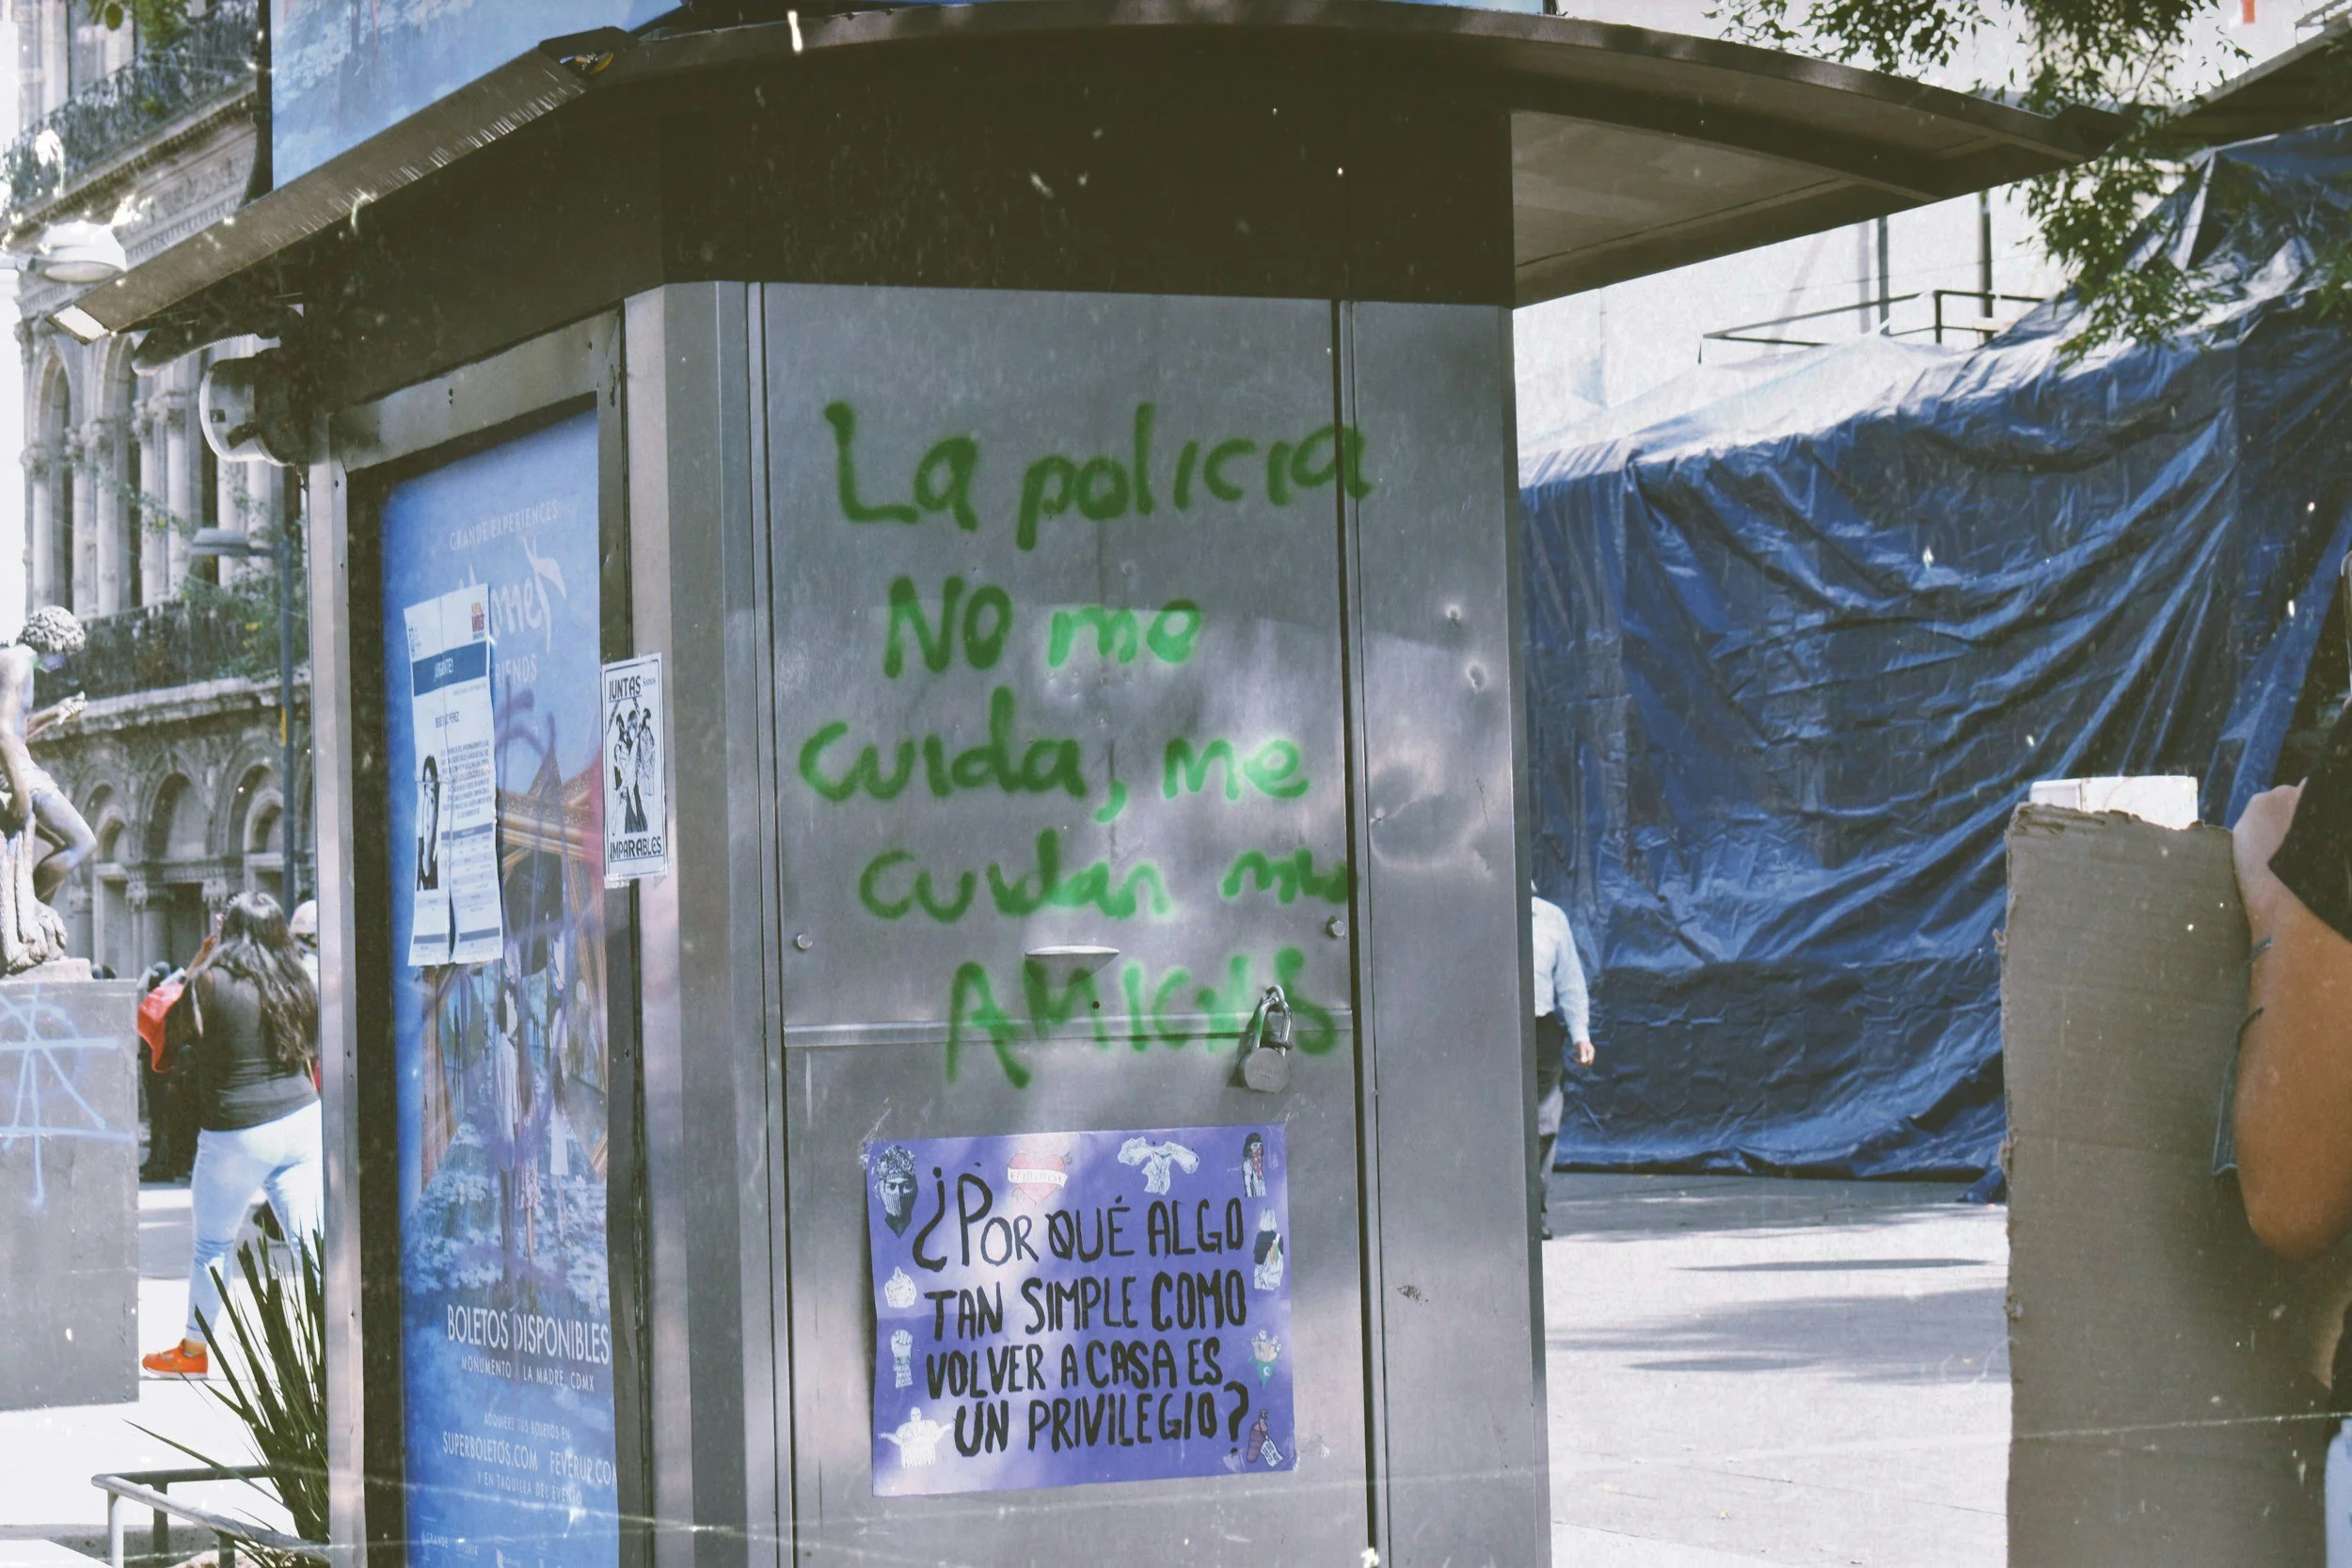 La policia
No me
cuida, me
cuidan mis
AMIGXS
¿POR QUÉ ALGO
TAN SIMPLE COMO
VOLVER A CASA ES
UN PRIVILEGIO?
JUNTAS
IMPARABLES
GRANDE EXPERIENCES
¡URGENTE!
BOLETOS DISPONIBLES
MONUMENTO A LA MADRE, CDMX
ADQUIERE TUS BOLETOS EN
SUPERBOLETOS.COM FEVERUP.COM
Y EN TAQUILLA DEL EVENTO